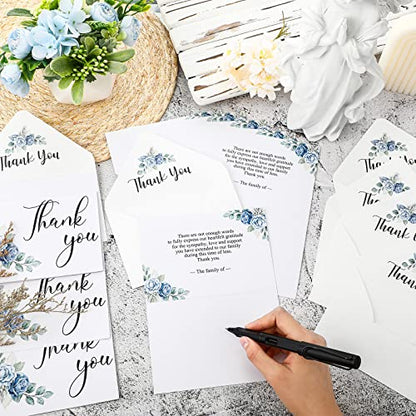 Thank You
Thank
you
Thank
you
Thank
you
Thank You
There are not enough words
to fully express our heartfelt gratitude
for the sympathy, love and support
you have extended to our family
during this time of loss.
Thank you
The family of —
There are not enough words
to fully express our heartfelt gratitude
for the sympathy, love and support
you have extended to our family
during this time of loss.
Thank you
The family of —
Thank You
Thank You
Thank You
Thank You